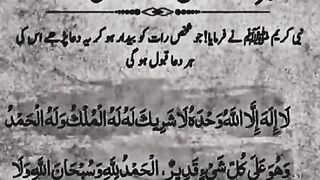 نبی کریم ﷺ نے فرمایا! جو شخص رات کو بیدار ہو کر یہ دعا پڑھے اس کی
ہر دعا قبول ہو گی
لَا إِلَهَ إِلَّا اللَّهُ وَحْدَهُ لَا شَرِيكَ لَهُ لَهُ الْمُلْكُ وَلَهُ الْحَمْدُ
وَهُوَ عَلَى كُلِّ شَيْءٍ قَدِيرٌ، الْحَمْدُ لِلَّهِ وَسُبْحَانَ اللَّهِ وَلَا